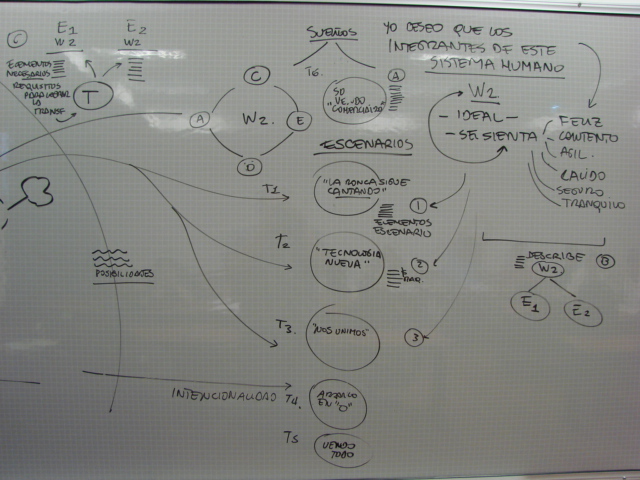 C
E1
W2
E2
W2
ELEMENTOS
NECESARIOS
REQUISITOS
PARA LOGRAR
LA
TRANSF.
T
C
A
W2.
E
D
SUEÑOS
T6.
A
SO
VENDO
COMERCIALIZO
YO DESEO QUE LOS
INTEGRANTES DE ESTE
SISTEMA HUMANO
W2
- IDEAL -
- SE SIENTA
FELIZ
CONTENTO
AGIL.
SEGURO
TRANQUILO
ESCENARIOS
T1
"LA RONCA SIGUE
CANTANDO"
1
ELEMENTOS
ESCENARIO
T2
"TECNOLOGIA
NUEVA"
2
T3.
"NOS UNIMOS"
3
POSIBILIDADES
INTENCIONALIDAD
T4.
EN "O"
T5
VENDO
TODO
DESCRIBE
W2
B
E1
E2